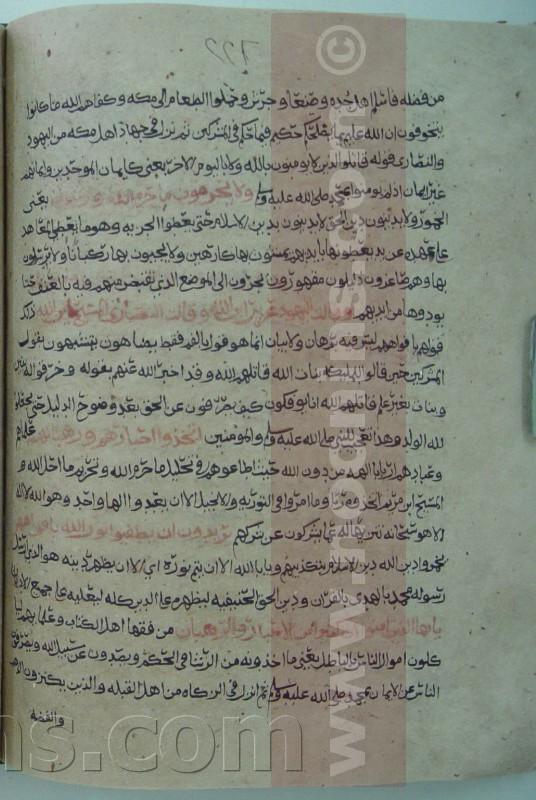 من فضله فاسلم اهل جده وصنعا وجرش وحملوا الطعام الى مكه وكفاهم الله ما كانوا
يتخوفون ان الله عليم بخلقه حكيم فيما حكم في المشركين ثم نزل في جهاد اهل مكه من اليهود
والنصارى قوله قاتلوا الذين لا يومنون بالله ولا باليوم الاخر يعني كايمان الموحدين وايمانهم
غير ايمان اذ لم يومنوا بمحمد صلى الله عليه وسلم ولا يحرمون ما حرم الله ورسوله يعني
الخمور ولا يدينون دين الحق لا يدينون بدين الاسلام حتى يعطوا الجزيه وهو ما يعطي المعاهد
على عهده عن يد يعطونها بايديهم يمشون بها كارهين ولا يجيون بها ركبانا ولا يرسلون
بها وهم صاغرون ذليلون مقهورون يجرون الى الموضع الذي تقبض منهم فيه بالعنف حتى
يودوها من ايديهم وقالت اليهود عزير ابن الله وقالت النصارى المسيح ابن الله ذلك
قولهم بافواههم ليس فيه برهان ولا بيان انما هو قول بالفم فقط يضاهون يتشبهون بقول
المشركين حين قالوا الملايكه بنات الله قاتلهم الله وقد اخبر الله عنهم بقوله وخرقوا له بنين
وبنات بغير علم قاتلهم الله انا يوفكون كيف يصرفون عن الحق بعد وضوح الدليل حتى يجعلوا
لله الولد وهذا تعجيب للنبي صلى الله عليه وسلم والمومنين اتخذوا احبارهم ورهبانهم علماهم
وعبادهم اربابا الهه من دون الله حيث اطاعوهم في تحليل ما حرم الله وتحريم ما احل الله و
المسيح ابن مريم اتخذوه ربا وما امروا في التوريه والانجيل الا ان يعبدوا الها واحدا وهو الله لا اله
الا هو سبحانه تنزيها له عما يشركون عن شركهم يريدون ان يطفئوا نور الله بافواههم
يخمدوا دين الله دين الاسلام بتكذيبهم ويابا الله الا ان يتم نوره اي الا ان يظهر دينه هو الذي ارسل
رسوله محمد بالهدى بالقران ودين الحق الحنيفيه ليظهره على الدين كله ليعليه على جميع الاديان
يايها الذين امنوا ان كثيرا من الاحبار والرهبان من فقها اهل الكتاب وعلمايهم ليا
كلون اموال الناس بالباطل يعني ما اخذوه من الرشا في الحكم ويصدون عن سبيل الله ويصرفون
الناس عن الايمان بمحمد صلى الله عليه وسلم ثم انزل في الزكاه من اهل القبله والذين يكنزون الذهب
والفضه